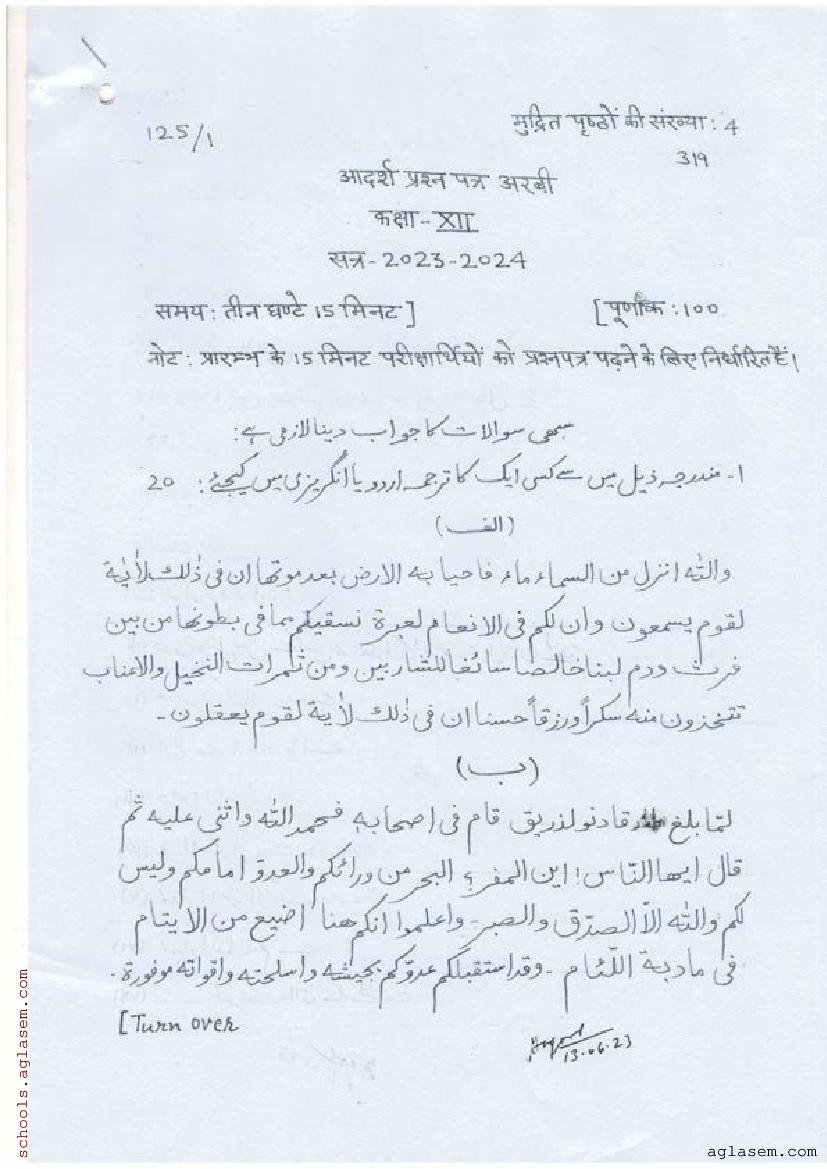 125/1
मुद्रित पृष्ठों की संख्या : 4
319
आदर्श प्रश्न पत्र अरबी
कक्षा - XII
सत्र - 2023-2024
समय : तीन घण्टे 15 मिनट]
[पूर्णांक : 100
नोट : प्रारम्भ के 15 मिनट परीक्षार्थियों को प्रश्नपत्र पढ़ने के लिए निर्धारित हैं।
سبھی سوالات کا جواب دینا لازمی ہے:
۱- مندرجہ ذیل میں سے کسی ایک کا ترجمہ اردو یا انگریزی میں کیجئے: 20
(الف)
والله انزل من السماء ماء فاحيا به الارض بعد موتها ان فى ذٰلك لأية
لقوم يسمعون وان لكم فى الانعام لعبرة نسقيكم مما فى بطونها من بين
فرث ودم لبنا خالصا سائغا للشاربين ومن ثمرات النخيل والاعناب
تتخذون منه سكراً ورزقاً حسنا ان فى ذٰلك لأية لقوم يعقلون -
(ب)
لمّا بلغ قادنو لذريق قام فى اصحابه فحمد الله واثنى عليه ثم
قال ايها النّاس! اين المفر؟ البحر من ورائكم والعدوّ امامكم وليس
لكم والله الاّ الصدق والصبر - واعلموا انكم هنا اضيع من الايتام
فى مادبة اللّئام - وقد استقبلكم عدوّكم بجيشه واسلحته واقواته موفورة .
[Turn over
13.06.23
schools.aglasem.com
aglasem.com